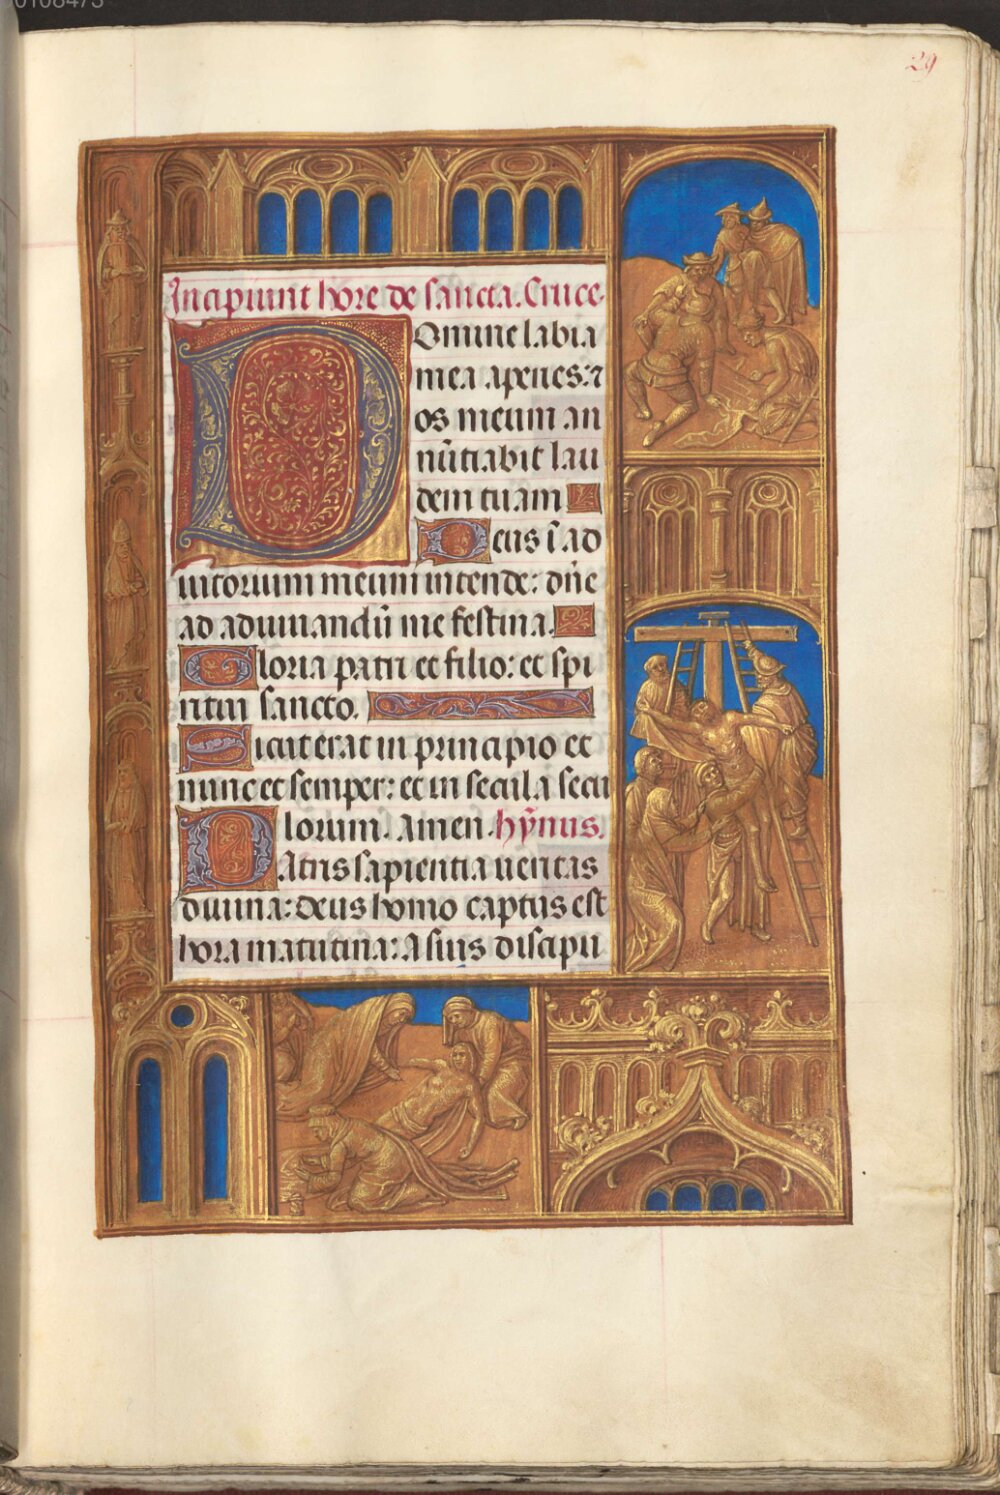 00108473
29
Incipiunt hore de sancta. Cruce.
Domine labia
mea aperies: ⁊
os meum an
nūtiabit lau
dem tuam
Deus ī ad
iutorium meum intende: dn̄e
ad adiuuandū me festina.
Gloria patri et filio: et spi
ritui sancto.
Sicut erat in principio et
nunc et semper: et in secula secu
lorum. Amen. hȳnus.
Patris sapientia ueritas
diuina: deus homo captus est
hora matutina: A suis discipu